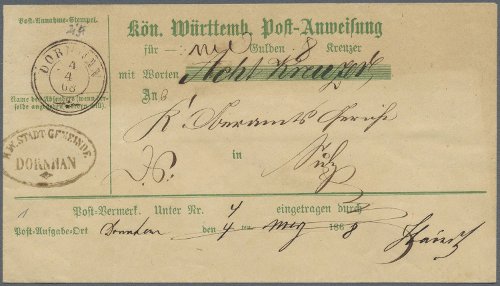 Post-Annahme-Stempel.
Kön. Württemb. Post-Anweisung
DORNHAN
4
4
68
für nul Gulden 8 Kreuzer
mit Worten Acht Kreuzer
Name des Absenders (wenn derselbe
An
K. Oberamts Gericht
in
Sulz
D.S.
K.W. STADT-GEMEINDE
DORNHAN
Post-Vermerk. Unter Nr. 4 eingetragen durch
Post-Aufgabe-Ort Dornhan den 4 ten May 1868